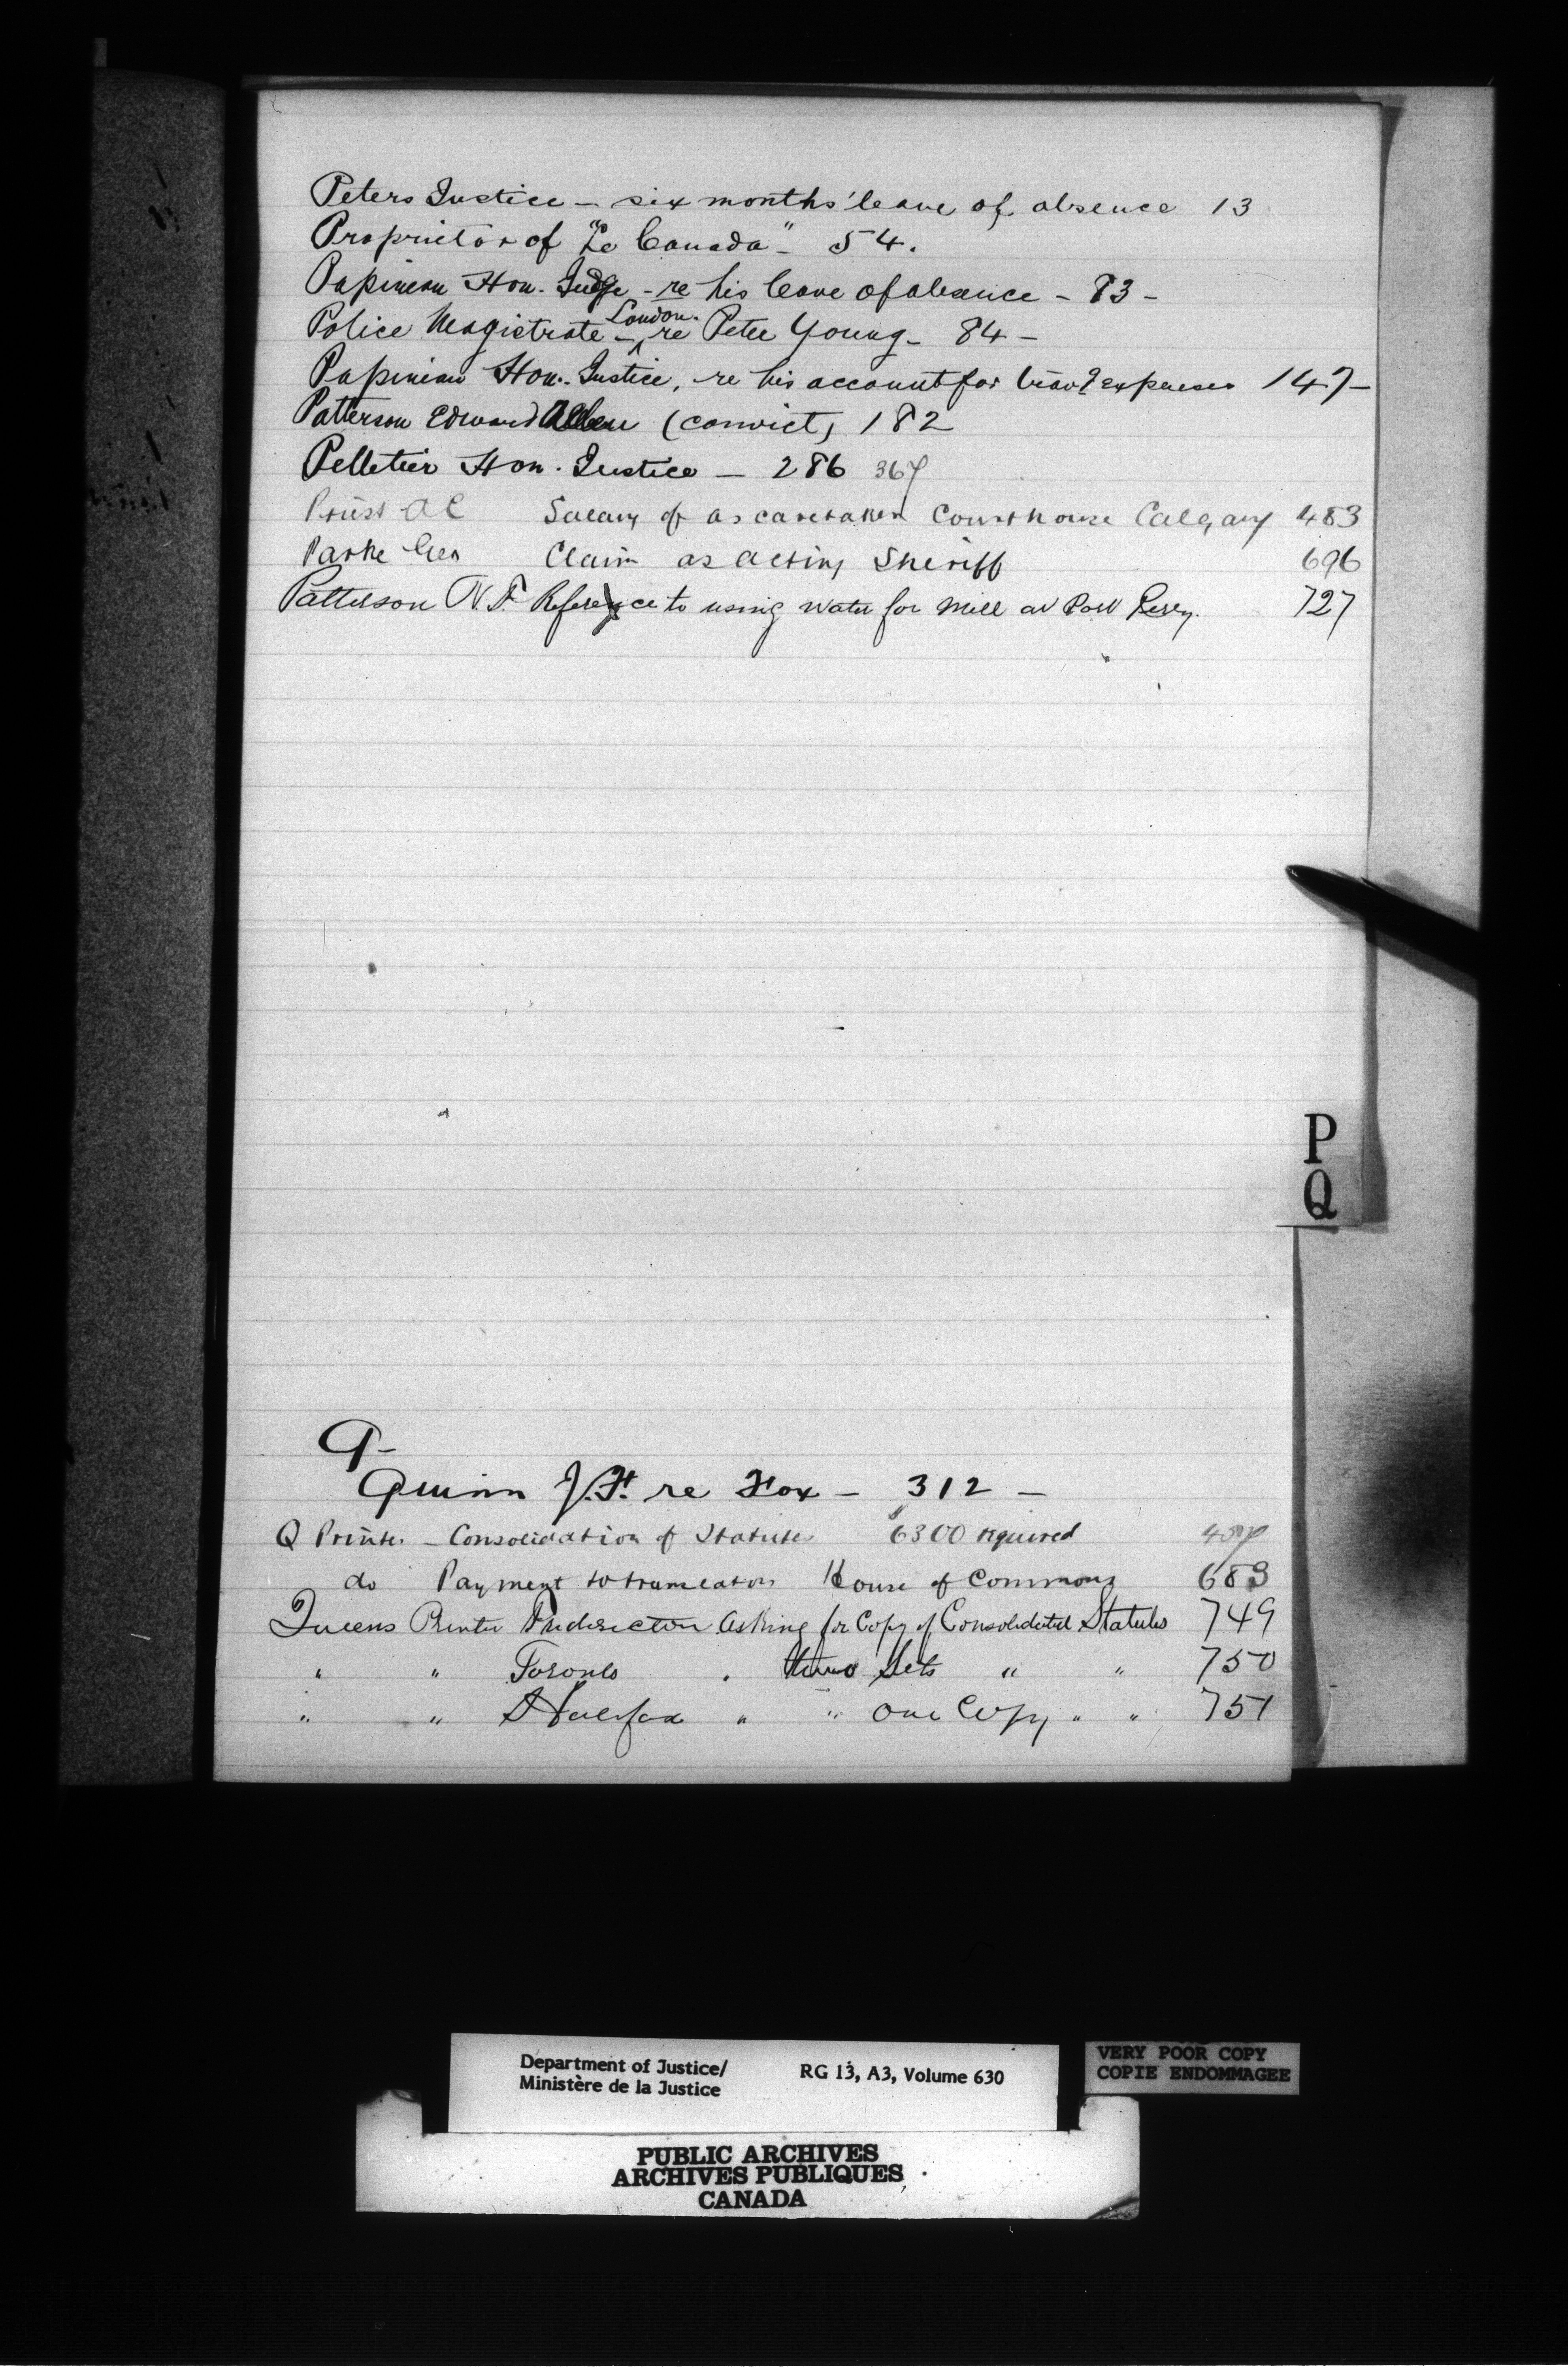 Peters Justice – six months' leave of absence 13
Proprietor of "Le Canada" – 54.
Papineau Hon. Judge – re his leave of absence – 83 –
Police Magistrate – London. re Peter Young – 84 –
Papineau Hon. Justice, re his account for trav? expenses 147 –
Patterson Edward Allen (convict) 182
Pelletier Hon. Justice – 286 367
Priest A C Salary of as caretaker Courthouse Calgary 483
Parke Geo Claim as acting Sheriff 696
Patterson N. F. Reference to using water for Mill at Port Perry. 727
P
Q
Q –
Quinn J. F. re Fox – 312 –
Q Printer – Consolidation of Statutes 6300 required
do Payment to translators House of Commons 683
Queens Printer Fredericton Asking for Copy of Consolidated Statutes 749
" " Toronto " three Sets " " 750
" " Halifax " " One Copy " " 751
Department of Justice/
Ministère de la Justice
RG 13, A3, Volume 630
VERY POOR COPY
COPIE ENDOMMAGEE
PUBLIC ARCHIVES
ARCHIVES PUBLIQUES
CANADA